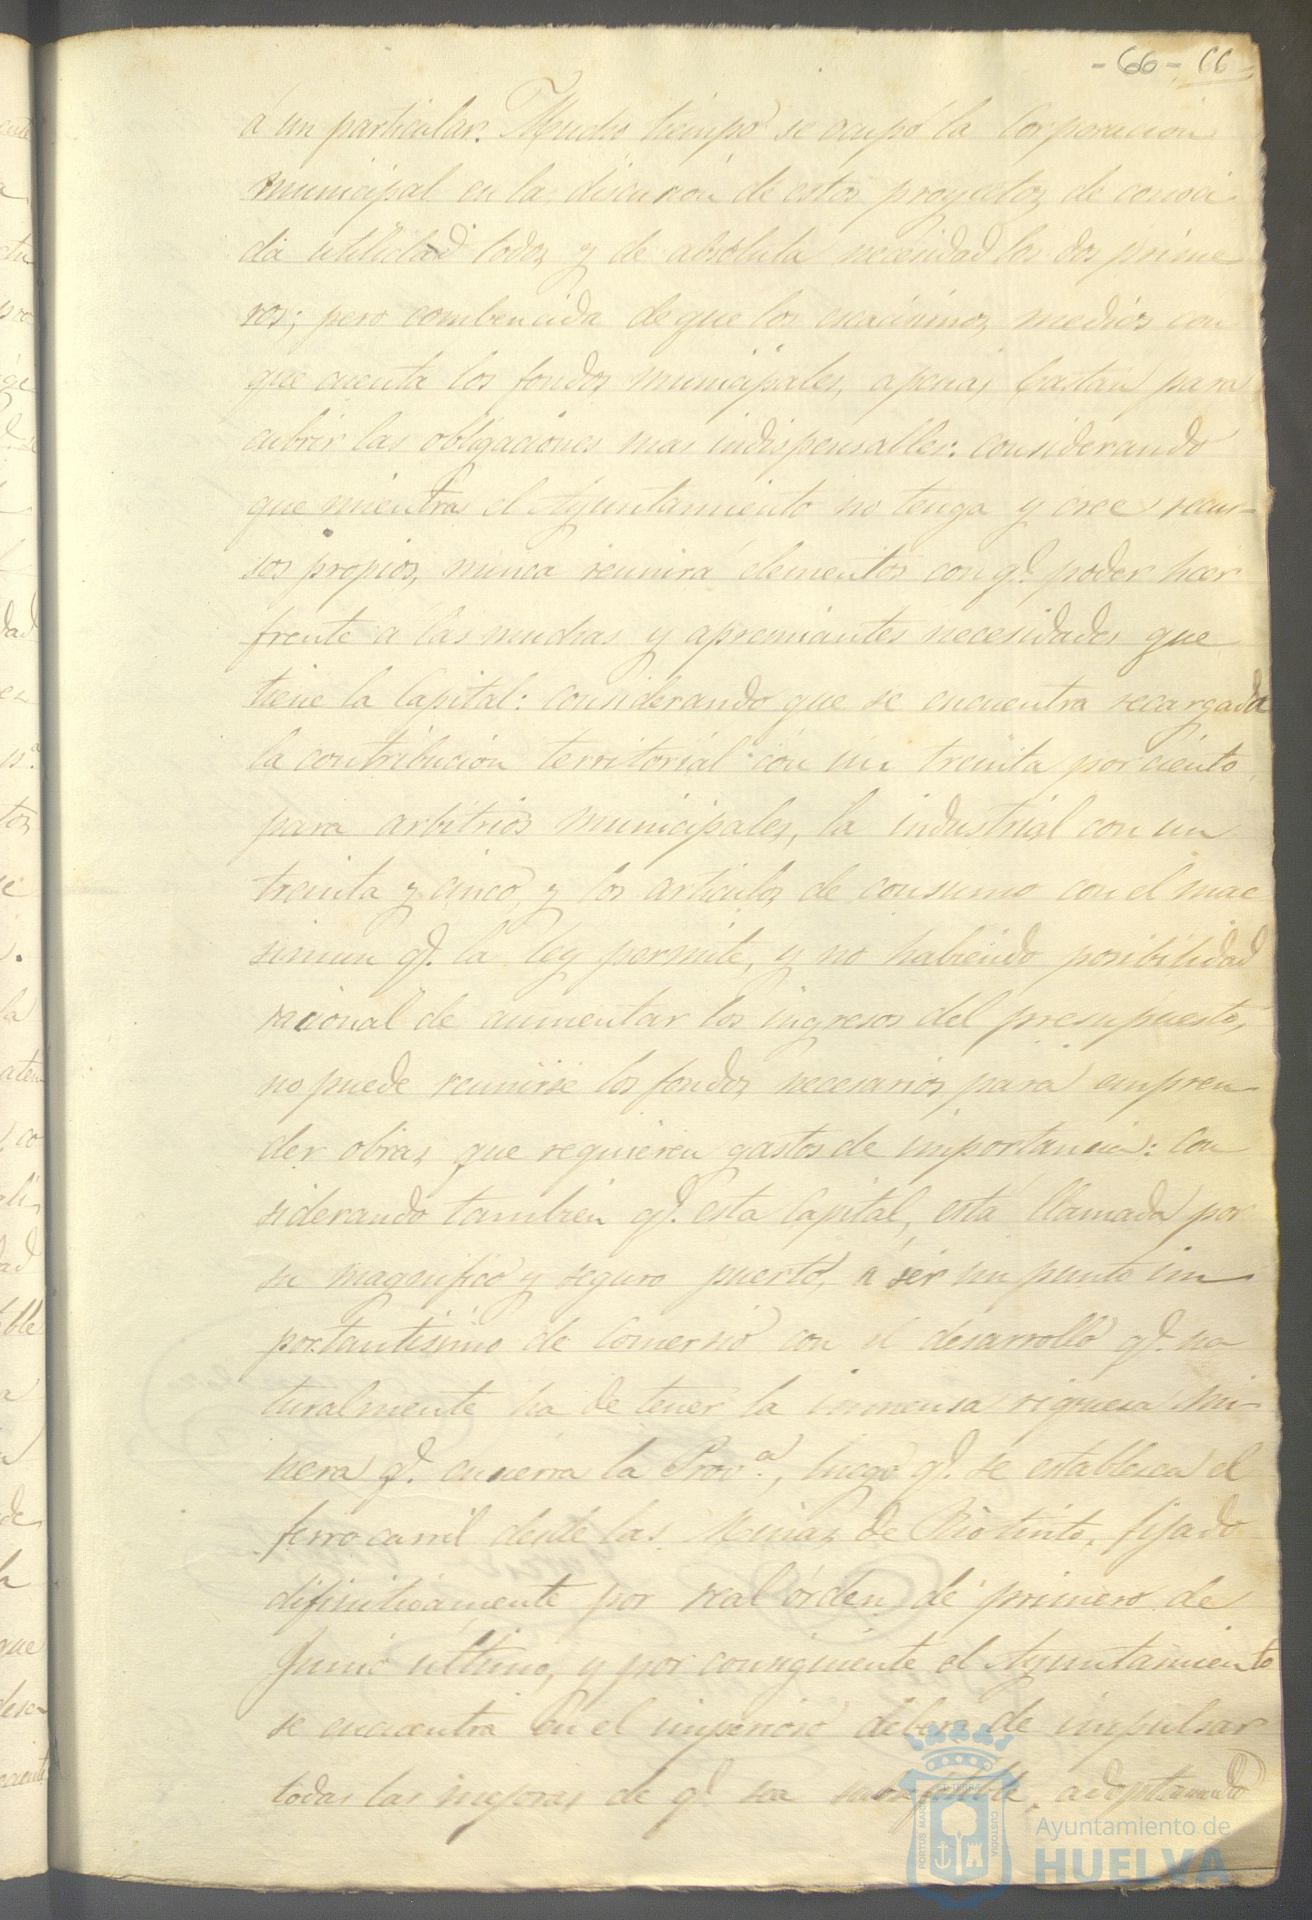 -66- 66
á un particular. Mucho tiempo se ocupó la Corporacion
municipal en la discusion de estos proyectos de conoci
da utilidad todos y de absoluta necesidad los dos prime
ros; pero combencida de que los escasisimos medios con
que cuenta los fondos municipales, apenas bastan para
cubrir las obligaciones mas indispensables: considerando
que mientras el Ayuntamiento no tenga y cree recur-
sos propios, nunca reunirá elementos con q.e poder hacer
frente á las muchas y apremiantes necesidades que
tiene la Capital: considerando que se encuentra recargada
la contribucion territorial con un treinta por ciento
para arbitrios municipales, la industrial con un
treinta y cinco y los articulos de consumo con el mac
simun q.e la ley permite, y no habiendo posibilidad
racional de aumentar los ingresos del presupuesto,
no puede reunirse los fondos necesarios para empren
der obras que requieren gastos de importancia: con
siderando tambien q.e esta Capital, está llamada por
su magnifico y seguro puerto, á ser un punto im
portantisimo de Comersio con el desarrollo q.e na
turalmente ha de tener la inmensa riquesa mi-
nera q.e encierra la Prov.a, luego q.e se establesca el
ferro carril desde las Minas de Rio tinto, fijado
difinitivamente por real órden de primero de
Junio ultimo, y por consiguiente el Ayuntamiento
se encuentra en el imperioso deber de impulsar
todas las mejoras de q.e sea suseptible, adoptando
PORTUS MARIS ET TERRAE CUSTODIA
Ayuntamiento de
HUELVA